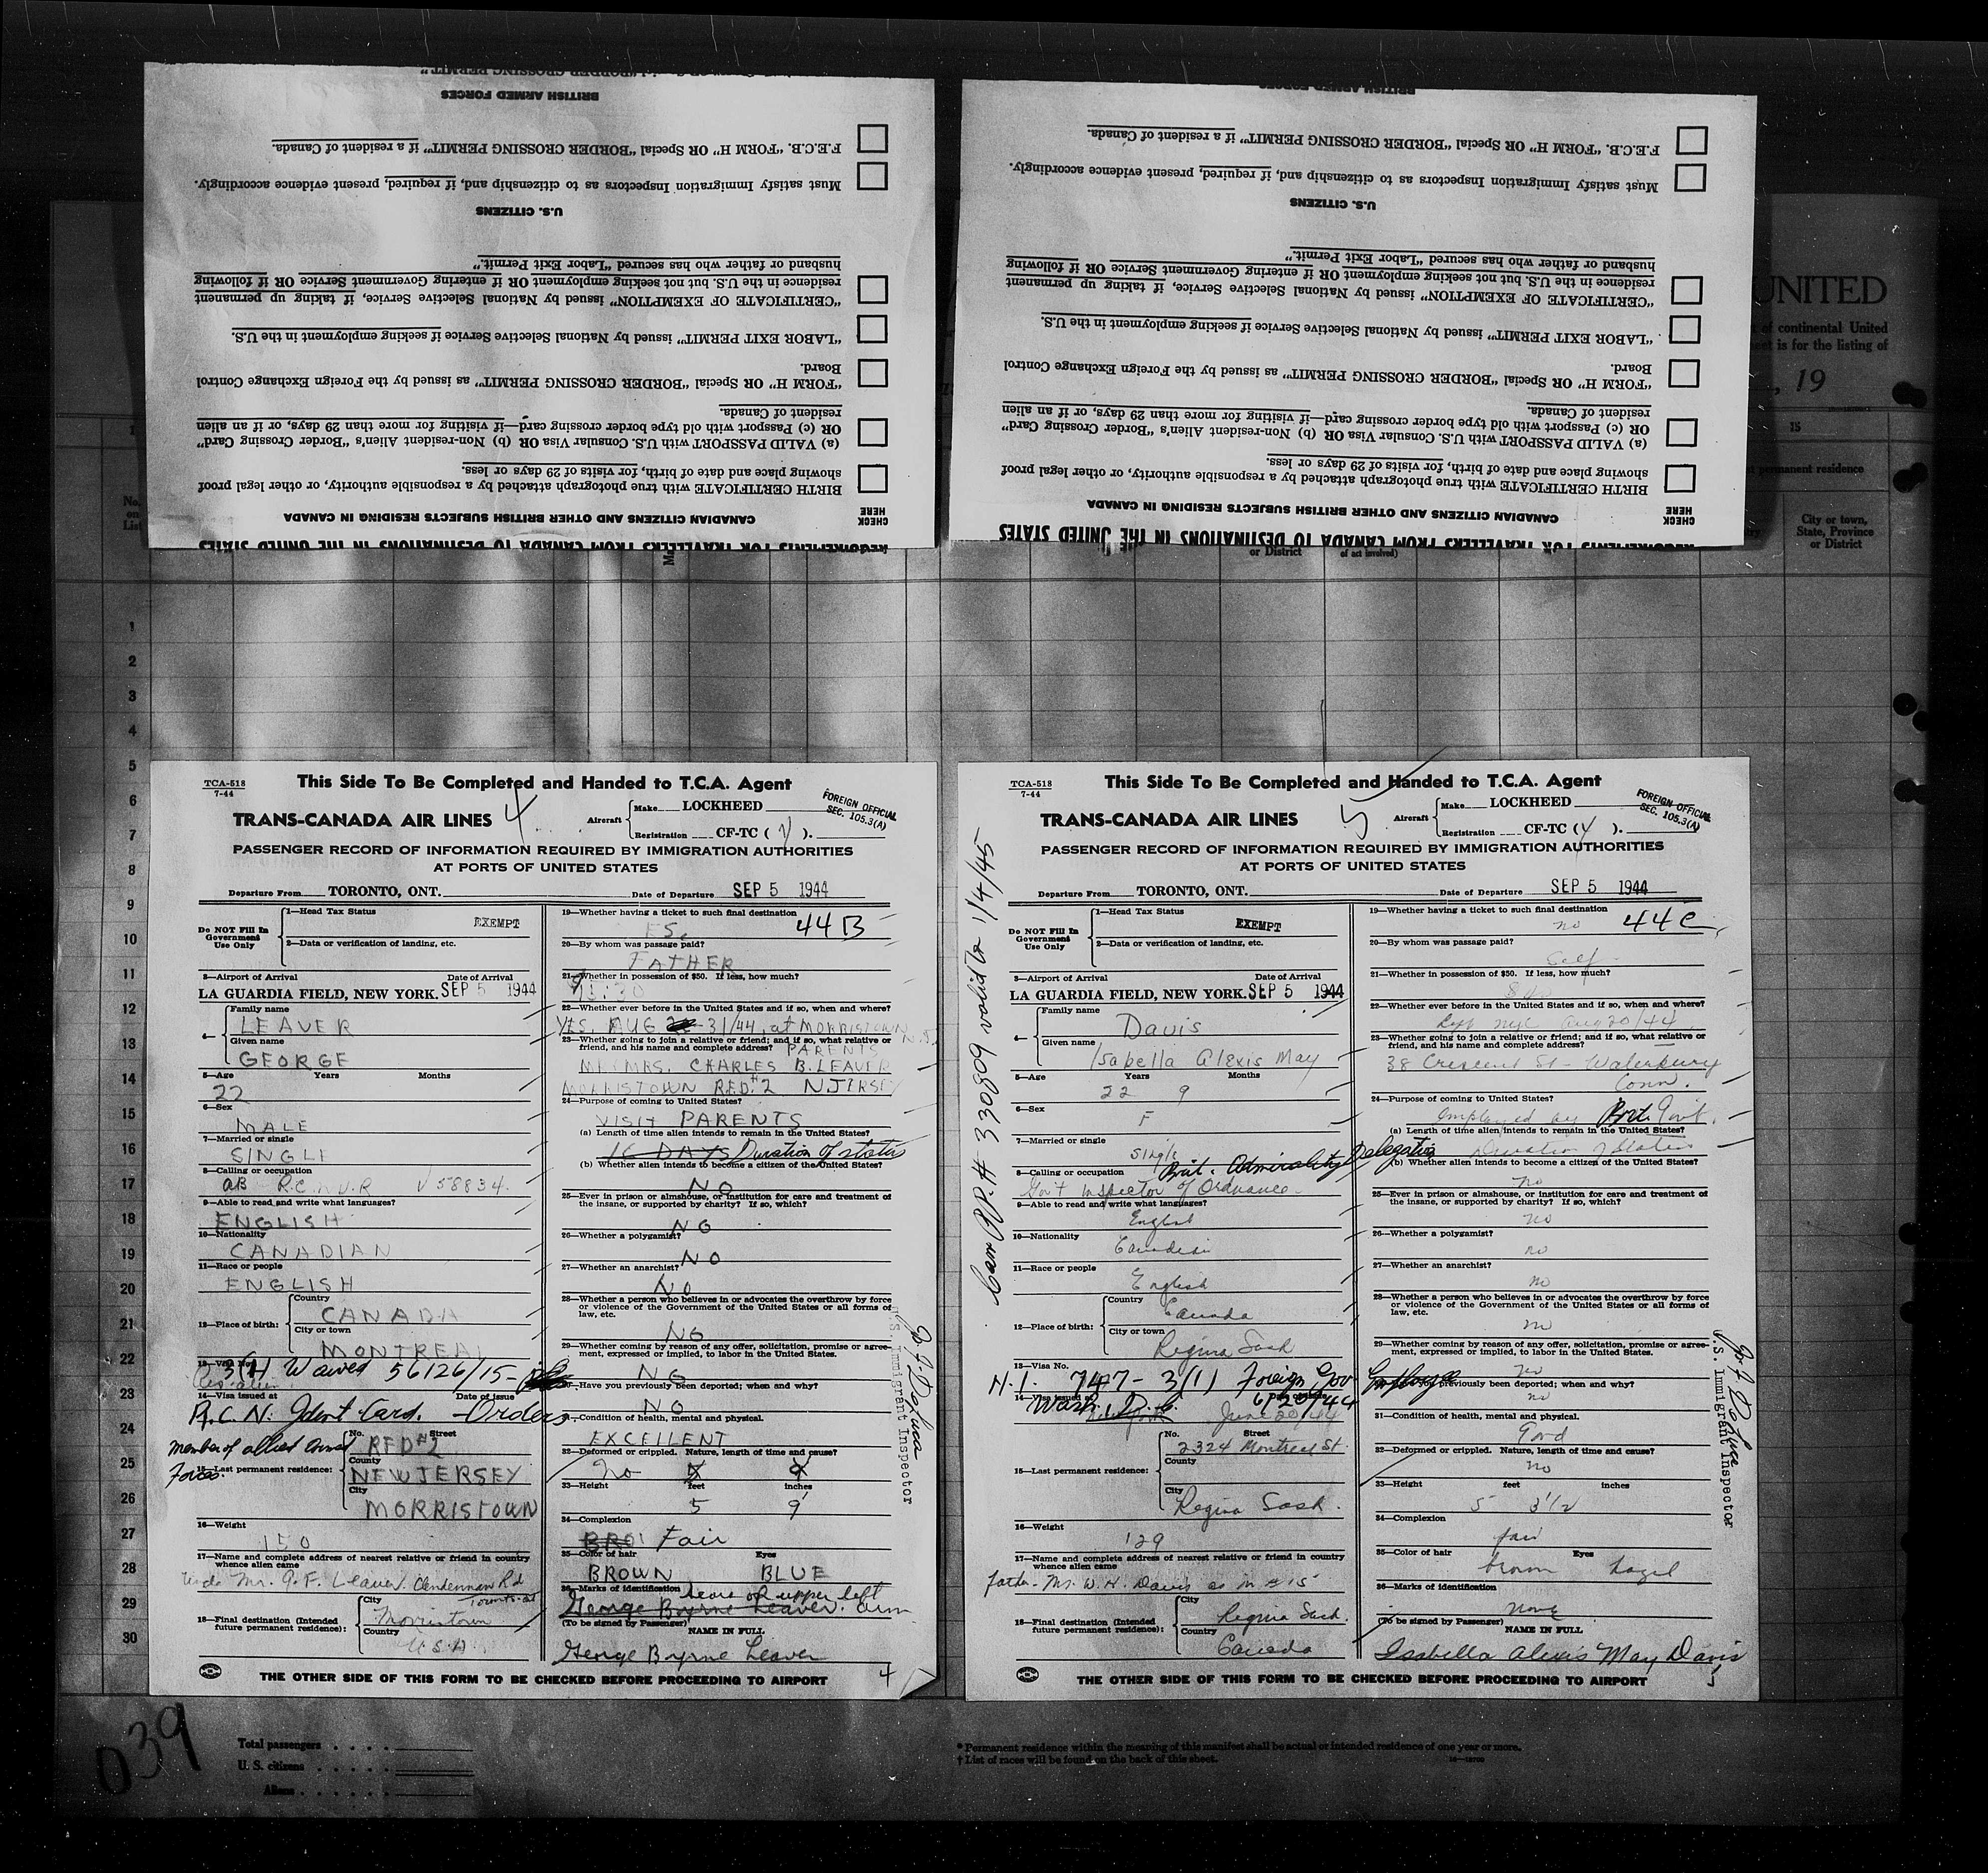 BRITISH ARMED FORCES
F.E.C.B. "FORM H" OR Special "BORDER CROSSING PERMIT" if a resident of Canada.
Must satisfy Immigration Inspectors as to citizenship and, if required, present evidence accordingly.
U.S. CITIZENS
husband or father who has secured "Labor Exit Permit."
residence in the U.S. but not seeking employment OR if entering Government Service OR if following
"CERTIFICATE OF EXEMPTION" issued by National Selective Service, if taking up permanent
"LABOR EXIT PERMIT" issued by National Selective Service if seeking employment in the U.S.
Board.
"FORM H" OR Special "BORDER CROSSING PERMIT" as issued by the Foreign Exchange Control
resident of Canada.
OR (c) Passport with old type border crossing card—if visiting for more than 29 days, or if an alien
(a) VALID PASSPORT with U.S. Consular Visa OR (b) Non-resident Alien's "Border Crossing Card"
showing place and date of birth, for visits of 29 days or less.
BIRTH CERTIFICATE with true photograph attached by a responsible authority, or other legal proof
CHECK HERE
CANADIAN CITIZENS AND OTHER BRITISH SUBJECTS RESIDING IN CANADA
REQUIREMENTS FOR TRAVELLERS FROM CANADA TO DESTINATIONS IN THE UNITED STATES
BRITISH ARMED FORCES
F.E.C.B. "FORM H" OR Special "BORDER CROSSING PERMIT" if a resident of Canada.
Must satisfy Immigration Inspectors as to citizenship and, if required, present evidence accordingly.
U.S. CITIZENS
husband or father who has secured "Labor Exit Permit."
residence in the U.S. but not seeking employment OR if entering Government Service OR if following
"CERTIFICATE OF EXEMPTION" issued by National Selective Service, if taking up permanent
"LABOR EXIT PERMIT" issued by National Selective Service if seeking employment in the U.S.
Board.
"FORM H" OR Special "BORDER CROSSING PERMIT" as issued by the Foreign Exchange Control
resident of Canada.
OR (c) Passport with old type border crossing card—if visiting for more than 29 days, or if an alien
(a) VALID PASSPORT with U.S. Consular Visa OR (b) Non-resident Alien's "Border Crossing Card"
showing place and date of birth, for visits of 29 days or less.
BIRTH CERTIFICATE with true photograph attached by a responsible authority, or other legal proof
CHECK HERE
CANADIAN CITIZENS AND OTHER BRITISH SUBJECTS RESIDING IN CANADA
REQUIREMENTS FOR TRAVELLERS FROM CANADA TO DESTINATIONS IN THE UNITED STATES
UNITED
of continental United
is for the listing of
, 19
15
permanent residence
City or town,
State, Province
or District
No. on List
or District
of act involved)
1
2
3
4
5
6
7
8
9
10
11
12
13
14
15
16
17
18
19
20
21
22
23
24
25
26
27
28
29
30
TCA-518
7-44
This Side To Be Completed and Handed to T.C.A. Agent
TRANS-CANADA AIR LINES 4
Aircraft
Make LOCKHEED
Registration CF-TC ( ).
FOREIGN OFFICIAL
SEC. 105.3(A)
PASSENGER RECORD OF INFORMATION REQUIRED BY IMMIGRATION AUTHORITIES
AT PORTS OF UNITED STATES
Departure From TORONTO, ONT. Date of Departure SEP 5 1944
Do NOT Fill in Government Use Only
1—Head Tax Status EXEMPT
2—Data or verification of landing, etc.
3—Airport of Arrival Date of Arrival
LA GUARDIA FIELD, NEW YORK. SEP 5 1944
4— Family name
LEAVER
Given name
GEORGE
5—Age Years Months
22
6—Sex
MALE
7—Married or single
SINGLE
8—Calling or occupation
AB R.C.N.V.R V58834
9—Able to read and write what languages?
ENGLISH
10—Nationality
CANADIAN
11—Race or people
ENGLISH
12—Place of birth:
Country
CANADA
City or town
MONTREAL
13—Visa No.
3(1) Waived 56126/15-
14—Visa issued at Date of issue
R.C.N. Ident Card. - Orders
member of allied armed Forces.
15—Last permanent residence:
No. Street
RFD#2
County
NEW JERSEY
City
MORRISTOWN
16—Weight
150
17—Name and complete address of nearest relative or friend in country
whence alien came
Uncle Mr. G.F. Leaver. Clendennan Rd
18—Final destination (Intended
future permanent residence):
City
Morristown
Country
U.S.A.
19—Whether having a ticket to such final destination
44B
20—By whom was passage paid?
FATHER
21—Whether in possession of $50. If less, how much?
22—Whether ever before in the United States and if so, when and where?
YES, AUG -31/44, at MORRISTOWN N.J.
23—Whether going to join a relative or friend; and if so, what relative or
friend, and his name and complete address? PARENTS
MR MRS. CHARLES B. LEAVER
MORRISTOWN RFD.#2 N JERSEY
24—Purpose of coming to United States?
VISIT PARENTS
(a) Length of time alien intends to remain in the United States?
16 DAYS Duration of status
(b) Whether alien intends to become a citizen of the United States?
NO
25—Ever in prison or almshouse, or institution for care and treatment of
the insane, or supported by charity? If so, which?
NO
26—Whether a polygamist?
NO
27—Whether an anarchist?
NO
28—Whether a person who believes in or advocates the overthrow by force
or violence of the Government of the United States or all forms of
law, etc.
NO
29—Whether coming by reason of any offer, solicitation, promise or agreement, expressed or implied, to labor in the United States.
NO
30—Have you previously been deported; when and why?
NO
31—Condition of health, mental and physical.
EXCELLENT
32—Deformed or crippled. Nature, length of time and cause?
No
33—Height feet inches
5 9
34—Complexion
Fair
35—Color of hair Eyes
BROWN BLUE
36—Marks of identification
George Byrne Leaver
(To be signed by Passenger) NAME IN FULL
George Byrne Leaver
U.S. Immigrant Inspector
THE OTHER SIDE OF THIS FORM TO BE CHECKED BEFORE PROCEEDING TO AIRPORT
4
TCA-518
7-44
This Side To Be Completed and Handed to T.C.A. Agent
TRANS-CANADA AIR LINES 5
Aircraft
Make LOCKHEED
Registration CF-TC ( ).
FOREIGN OFFICIAL
SEC. 105.3(A)
PASSENGER RECORD OF INFORMATION REQUIRED BY IMMIGRATION AUTHORITIES
AT PORTS OF UNITED STATES
Departure From TORONTO, ONT. Date of Departure SEP 5 1944
330809 valid to 1/4/45
Do NOT Fill in Government Use Only
1—Head Tax Status EXEMPT
2—Data or verification of landing, etc.
3—Airport of Arrival Date of Arrival
LA GUARDIA FIELD, NEW YORK. SEP 5 1944
4— Family name
Davis
Given name
Isabella Alexis May
5—Age Years Months
22 9
6—Sex
F
7—Married or single
Single
Brit. Admirality Delegation
8—Calling or occupation
Gov't Inspector of Ordnance
9—Able to read and write what languages?
English
10—Nationality
Canadian
11—Race or people
English
12—Place of birth:
Country
Canada
City or town
Regina Sask
13—Visa No.
N.I. 747- 3(1) Foreign Gov Employe
14—Visa issued at
Wash. D.C. 6/20/44
June 20/44
15—Last permanent residence:
No. Street
2324 Montreal St.
County
City
Regina Sask.
16—Weight
129
17—Name and complete address of nearest relative or friend in country
whence alien came
father - Mr. W.H. Davis as in #15
18—Final destination (Intended
future permanent residence):
City
Regina Sask.
Country
Canada
19—Whether having a ticket to such final destination
no 44C
20—By whom was passage paid?
Self
21—Whether in possession of $50. If less, how much?
22—Whether ever before in the United States and if so, when and where?
Aug 20/44
23—Whether going to join a relative or friend; and if so, what relative or
friend, and his name and complete address?
38 Crescent St - Waterbury
Conn.
24—Purpose of coming to United States?
Employed by Brit. Gov't.
(a) Length of time alien intends to remain in the United States?
Duration of Status
(b) Whether alien intends to become a citizen of the United States?
no
25—Ever in prison or almshouse, or institution for care and treatment of
the insane, or supported by charity? If so, which?
no
26—Whether a polygamist?
no
27—Whether an anarchist?
no
28—Whether a person who believes in or advocates the overthrow by force
or violence of the Government of the United States or all forms of
law, etc.
no
29—Whether coming by reason of any offer, solicitation, promise or agreement, expressed or implied, to labor in the United States.
no
previously been deported; when and why?
no
31—Condition of health, mental and physical.
Good
32—Deformed or crippled. Nature, length of time and cause?
no
33—Height feet inches
5 3 1/2
34—Complexion
fair
35—Color of hair Eyes
brown hazel
36—Marks of identification
none
(To be signed by Passenger) NAME IN FULL
Isabella Alexis May Davis
U.S. Immigrant Inspector
THE OTHER SIDE OF THIS FORM TO BE CHECKED BEFORE PROCEEDING TO AIRPORT
5
039
Total passengers
U. S. citizens
Aliens
* Permanent residence within the meaning of this manifest shall be actual or intended residence of one year or more.
† List of races will be found on the back of this sheet.